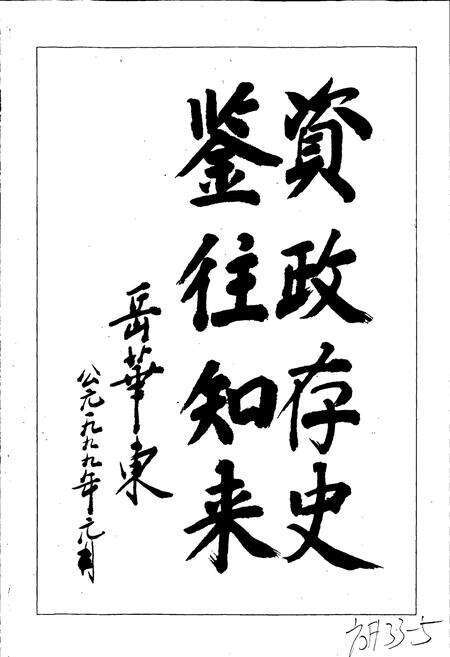 資政存史
鉴往知来
岳華东
公元一九九九年元月
33-5